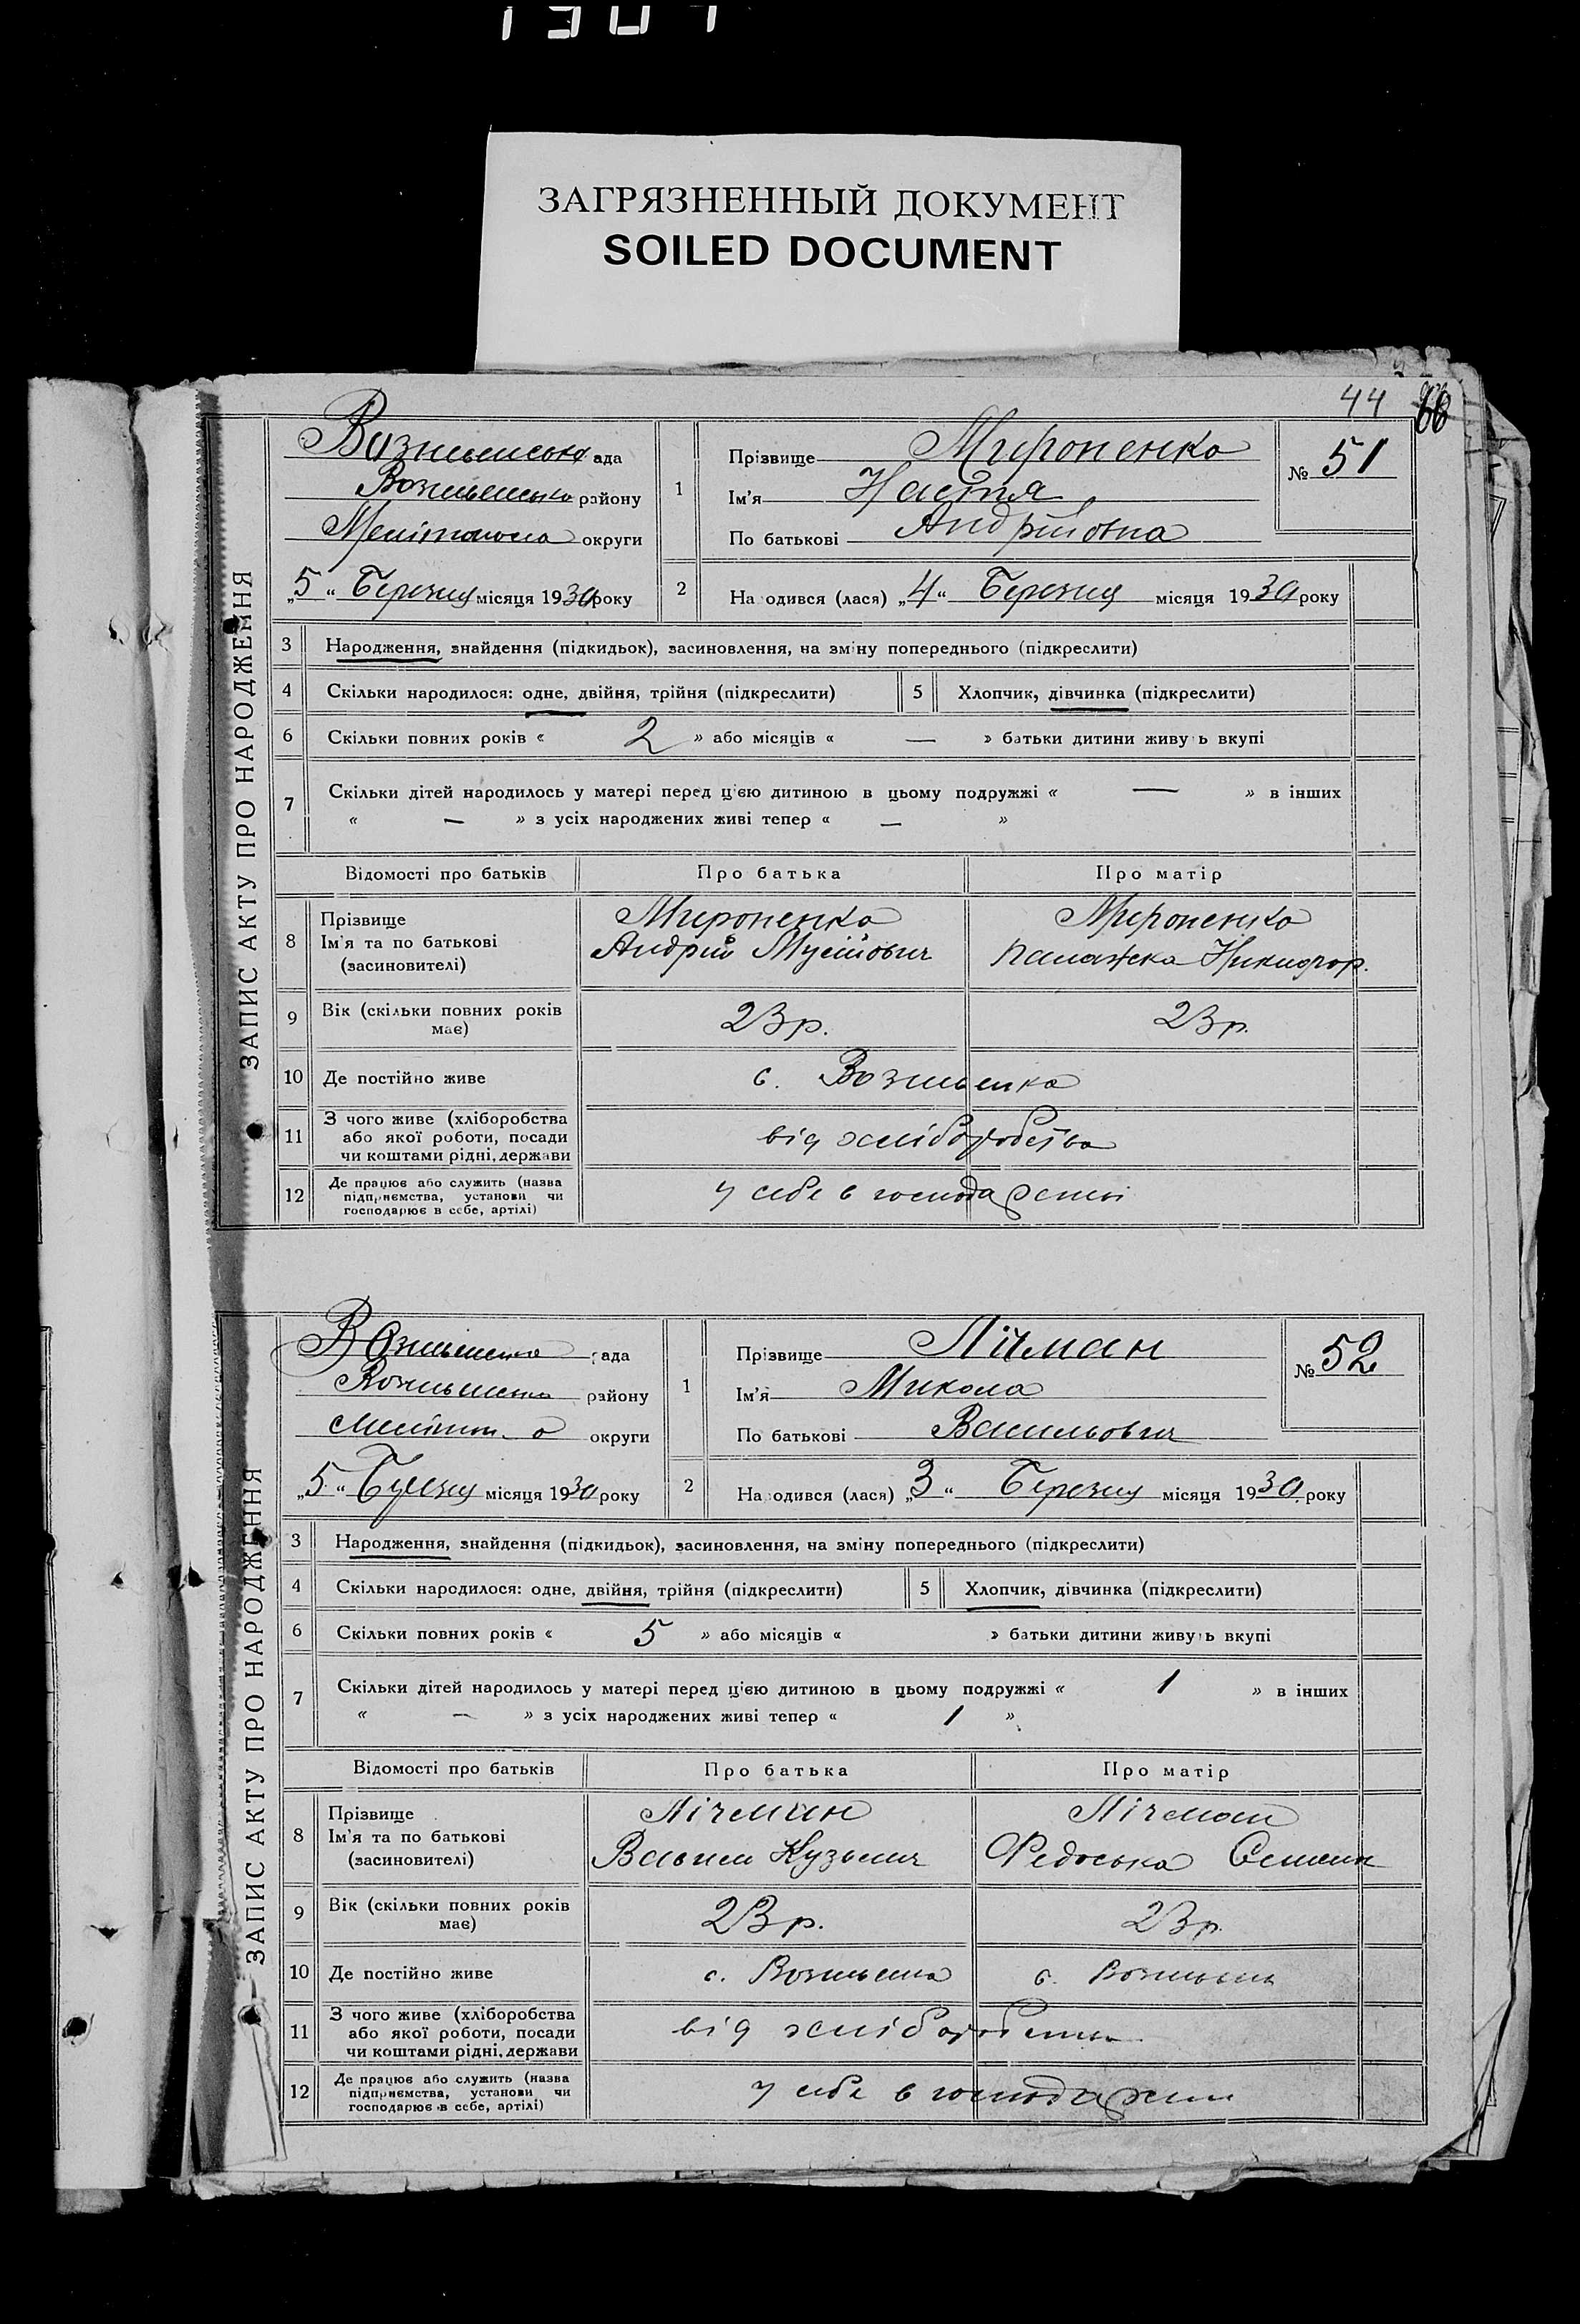 ЗАГРЯЗНЕННЫЙ ДОКУМЕНТ
SOILED DOCUMENT
44
66
ЗАПИС АКТУ ПРО НАРОДЖЕННЯ
ада
району
округи
„5“ Березня місяця 1930 року
1
Прізвище Мироненко
Ім'я Настя
По батькові Андріївна
№ 51
2 На одився (лася) „4“ Березня місяця 1930 року
3 Народження, знайдення (підкидьок), засиновлення, на зміну попереднього (підкреслити)
4 Скільки народилося: одне, двійня, трійня (підкреслити) 5 Хлопчик, дівчинка (підкреслити)
6 Скільки повних років « 2 » або місяців « — » батьки дитини живуть вкупі
7 Скільки дітей народилось у матері перед цією дитиною в цьому подружжі « — » в інших
« — » з усіх народжених живі тепер « — »
Відомості про батьків Про батька Про матір
8 Прізвище Ім'я та по батькові (засиновителі)
Мироненко Мироненко
Андрій Мусійович Палажка Никифор.
9 Вік (скільки повних років має) 23 р. 23 р.
10 Де постійно живе с.
11 З чого живе (хліборобства або якої роботи, посади чи коштами рідні, держави від хліборобства
12 Де працює або служить (назва підприємства, установи чи господарює в себе, артілі) у себе в господарстві
ЗАПИС АКТУ ПРО НАРОДЖЕННЯ
рада
району
округи
„5“ Березня місяця 1930 року
1
Прізвище Лічман
Ім'я Микола
По батькові Васильович
№ 52
2 На одився (лася) „3“ Березня місяця 1930 року
3 Народження, знайдення (підкидьок), засиновлення, на зміну попереднього (підкреслити)
4 Скільки народилося: одне, двійня, трійня (підкреслити) 5 Хлопчик, дівчинка (підкреслити)
6 Скільки повних років « 5 » або місяців « » батьки дитини живуть вкупі
7 Скільки дітей народилось у матері перед цією дитиною в цьому подружжі « 1 » в інших
« — » з усіх народжених живі тепер « 1 »
Відомості про батьків Про батька Про матір
8 Прізвище Ім'я та по батькові (засиновителі)
Лічман Лічман
Василь Кузьмич Федоська Семен
9 Вік (скільки повних років має) 23 р. 23 р.
10 Де постійно живе с. с.
11 З чого живе (хліборобства або якої роботи, посади чи коштами рідні, держави від
12 Де працює або служить (назва підприємства, установи чи господарює в себе, артілі) у себе в